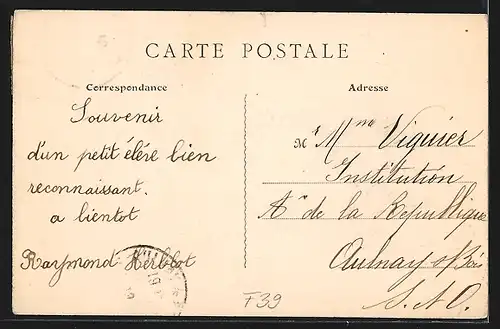 CARTE POSTALE
Correspondance
Souvenir
d'un petit élére bien
reconnaissant.
a bientot
Raymond Herblot
Adresse
Mr Mme Viguier
Institution
Ar de la Republique
Aulnay s/Bois
S. & O.
F39